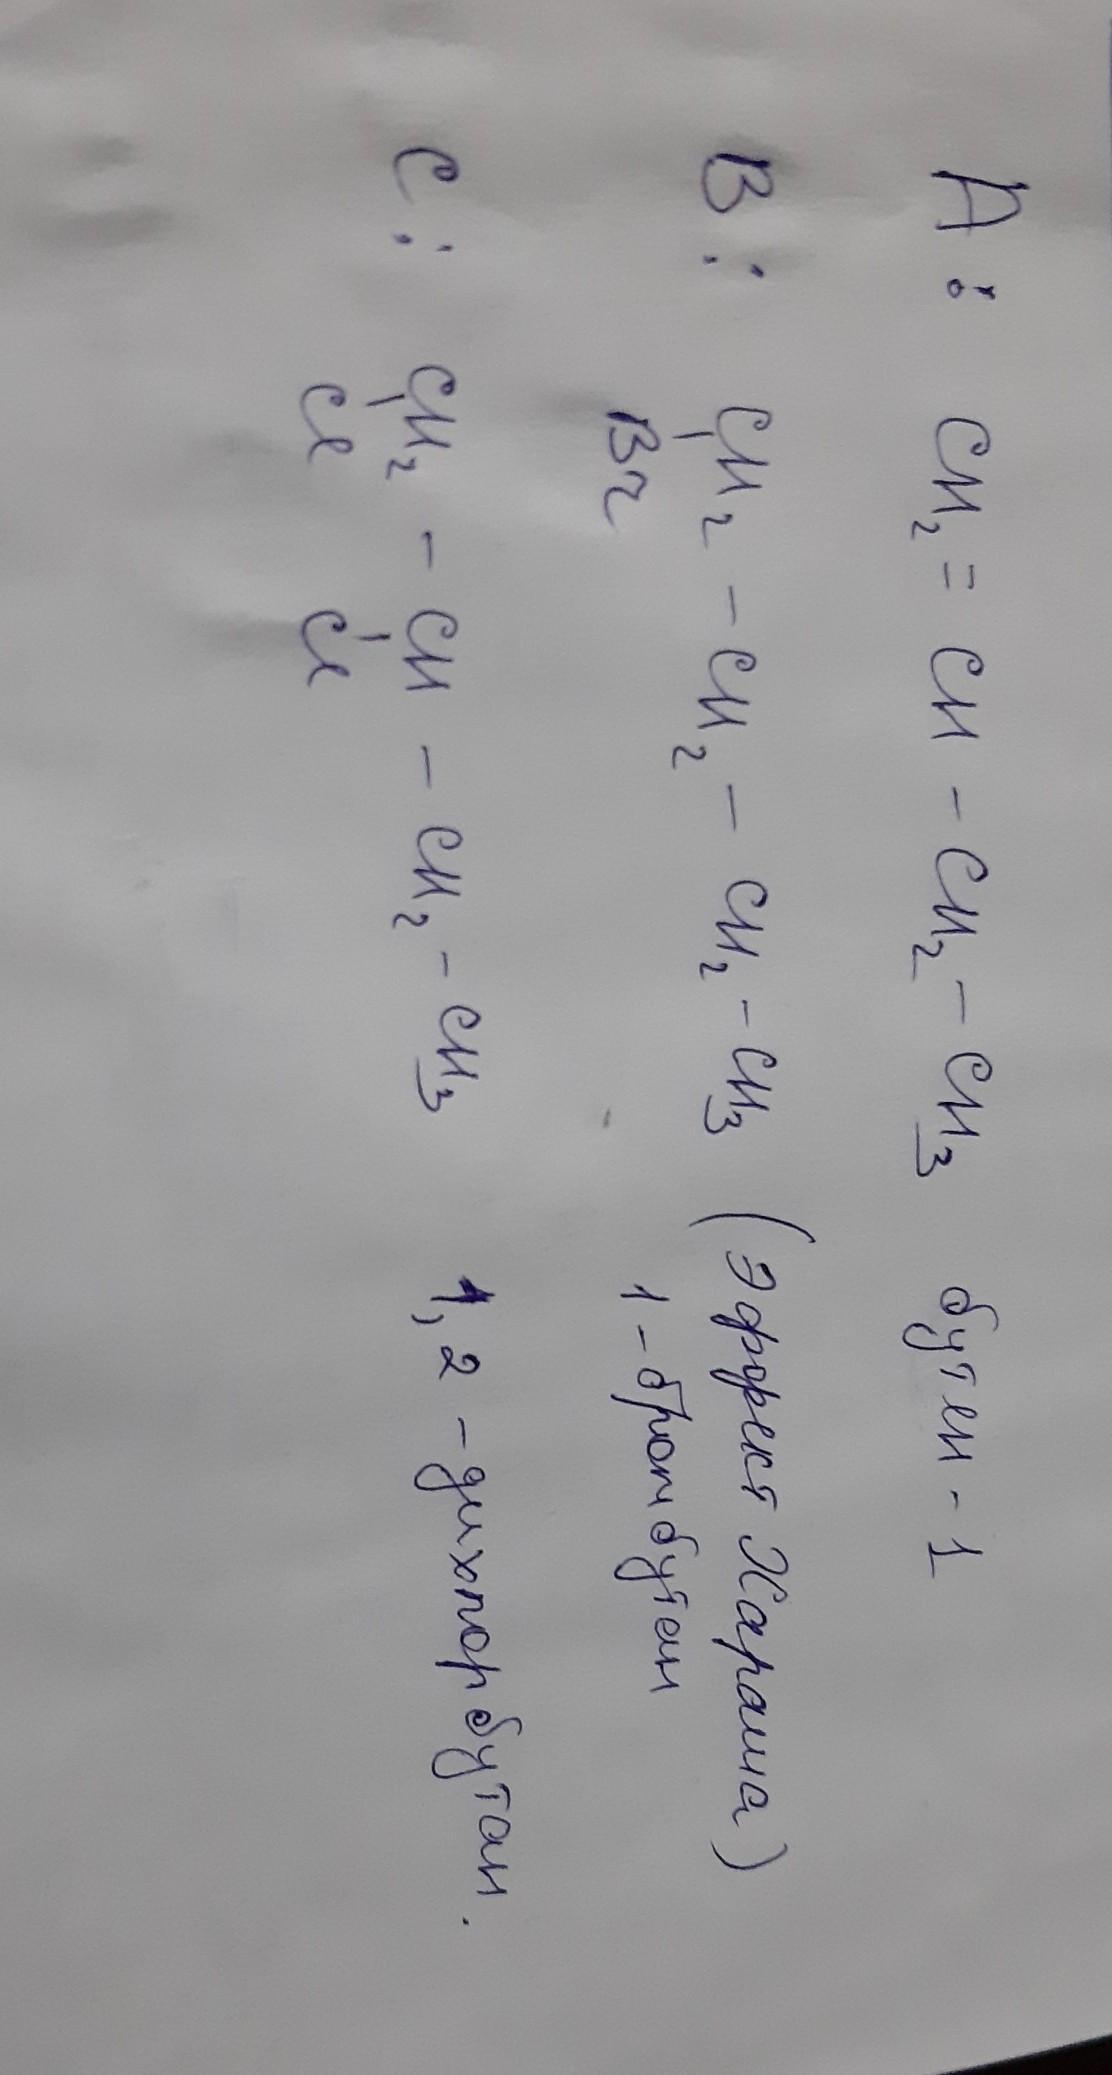 A: CH₂ = CH - CH₂ - CH₃ бутен - 1
B: CH₂ - CH₂ - CH₂ - CH₃ (Эффект Хараша)
Br 1 - бромбутан
C: CH₂ - CH - CH₂ - CH₃ 1,2 - дихлорбутан.
Cl Cl